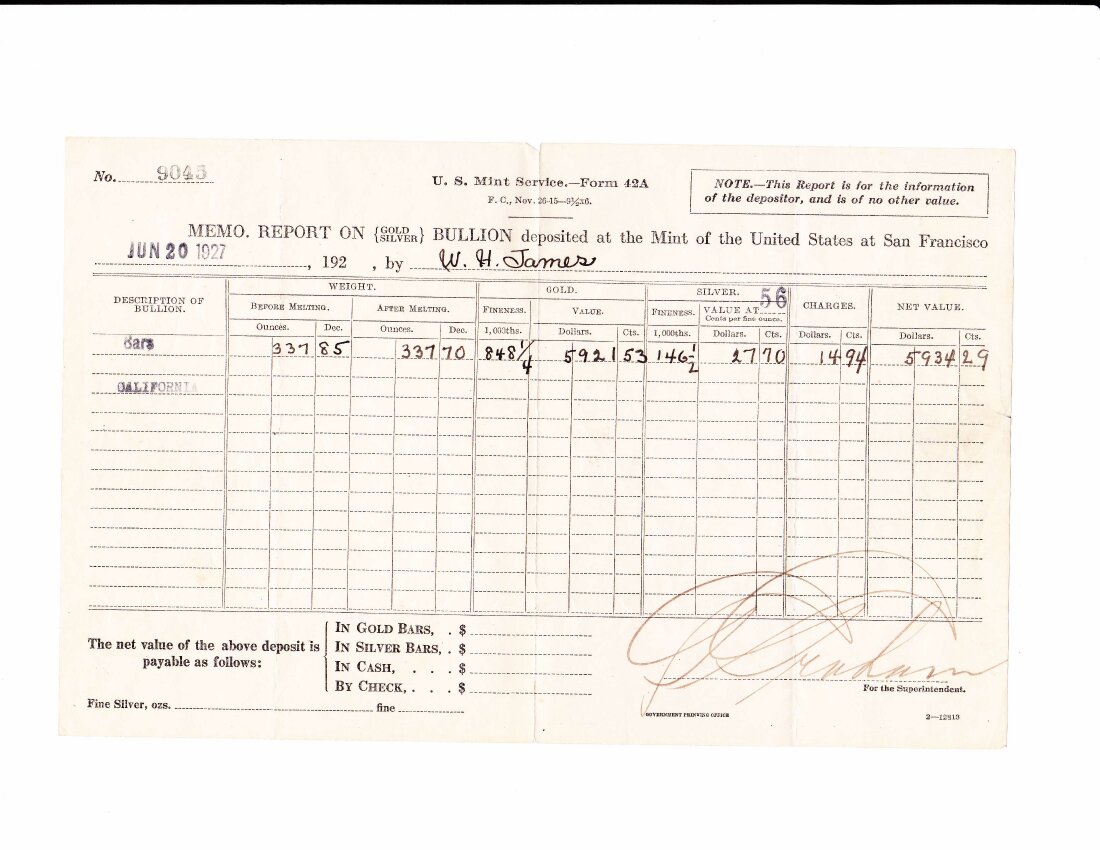 No. 9045
U. S. Mint Service.—Form 42A
F. C., Nov. 26-15—9½x6.
NOTE.—This Report is for the information
of the depositor, and is of no other value.
MEMO. REPORT ON {GOLD SILVER} BULLION deposited at the Mint of the United States at San Francisco
JUN 20 1927, 192 , by W. H. James
DESCRIPTION OF BULLION. WEIGHT. GOLD. SILVER. CHARGES. NET VALUE.
BEFORE MELTING. AFTER MELTING. FINENESS. VALUE. FINENESS. VALUE AT 56 Cents per fine ounce.
Ounces. Dec. Ounces. Dec. 1,000ths. Dollars. Cts. 1,000ths. Dollars. Cts. Dollars. Cts. Dollars. Cts.
Bars 337 85 337 70 848 1/4 5921 53 146 1/2 27 70 14 94 5934 29
CALIFORNIA
The net value of the above deposit is
payable as follows:
IN GOLD BARS, . $
IN SILVER BARS, . $
IN CASH, . . . $
BY CHECK, . . . $
Graham
For the Superintendent.
Fine Silver, ozs. fine
GOVERNMENT PRINTING OFFICE
2—12813